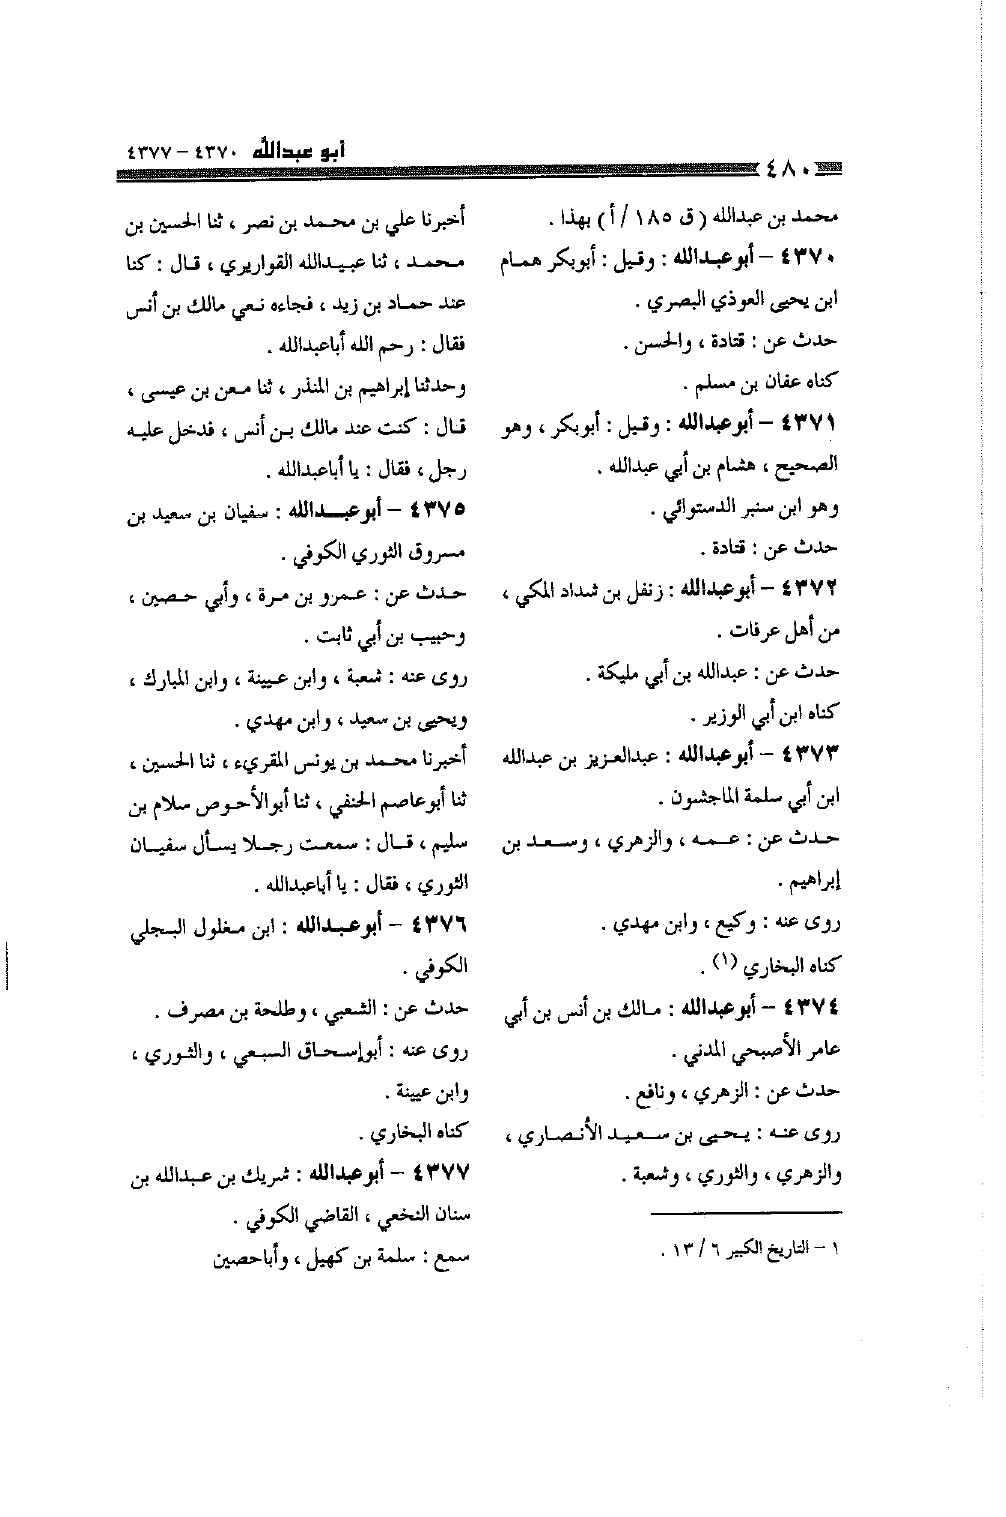 أبو عبدالله ٤٣٧٠ - ٤٣٧٧
٤٨٠
محمد بن عبدالله ( ق ١٨٥ / أ ) بهذا .
٤٣٧٠ - أبوعبدالله : وقيل : أبوبكر همام
ابن يحيى العوذي البصري .
حدث عن : قتادة ، والحسن .
كناه عفان بن مسلم .
٤٣٧١ - أبوعبدالله : وقيل : أبوبكر ، وهو
الصحيح ، هشام بن أبي عبدالله .
وهو ابن سنبر الدستوائي .
حدث عن : قتادة .
٤٣٧٢ - أبوعبدالله : زنفل بن شداد المكي ،
من أهل عرفات .
حدث عن : عبدالله بن أبي مليكة .
كناه ابن أبي الوزير .
٤٣٧٣ - أبوعبدالله : عبدالعزيز بن عبدالله
ابن أبي سلمة الماجشون .
حدث عن : عمه ، والزهري ، وسعد بن
إبراهيم .
روى عنه : وكيع ، وابن مهدي .
كناه البخاري (١) .
٤٣٧٤ - أبوعبدالله : مالك بن أنس بن أبي
عامر الأصبحي المدني .
حدث عن : الزهري ، ونافع .
روى عنه : يحيى بن سعيد الأنصاري ،
والزهري ، والثوري ، وشعبة .
١ - التاريخ الكبير ٦ / ١٣ .
أخبرنا علي بن محمد بن نصر ، ثنا الحسين بن
محمد ، ثنا عبيدالله القواريري ، قال : كنا
عند حماد بن زيد ، فجاءه نعي مالك بن أنس
فقال : رحم الله أباعبدالله .
وحدثنا إبراهيم بن المنذر ، ثنا معن بن عيسى ،
قال : كنت عند مالك بن أنس ، فدخل عليه
رجل ، فقال : يا أباعبدالله .
٤٣٧٥ - أبوعبدالله : سفيان بن سعيد بن
مسروق الثوري الكوفي .
حدث عن : عمرو بن مرة ، وأبي حصين ،
وحبيب بن أبي ثابت .
روى عنه : شعبة ، وابن عيينة ، وابن المبارك ،
ويحيى بن سعيد ، وابن مهدي .
أخبرنا محمد بن يونس المقريء ، ثنا الحسين ،
ثنا أبوعاصم الحنفي ، ثنا أبوالأحوص سلام بن
سليم ، قال : سمعت رجلا يسأل سفيان
الثوري ، فقال : يا أباعبدالله .
٤٣٧٦ - أبوعبدالله : ابن مغلول البجلي
الكوفي .
حدث عن : الشعبي ، وطلحة بن مصرف .
روى عنه : أبوإسحاق السبعي ، والثوري ،
وابن عيينة .
كناه البخاري .
٤٣٧٧ - أبوعبدالله : شريك بن عبدالله بن
سنان النخعي ، القاضي الكوفي .
سمع : سلمة بن كهيل ، وأباحصين